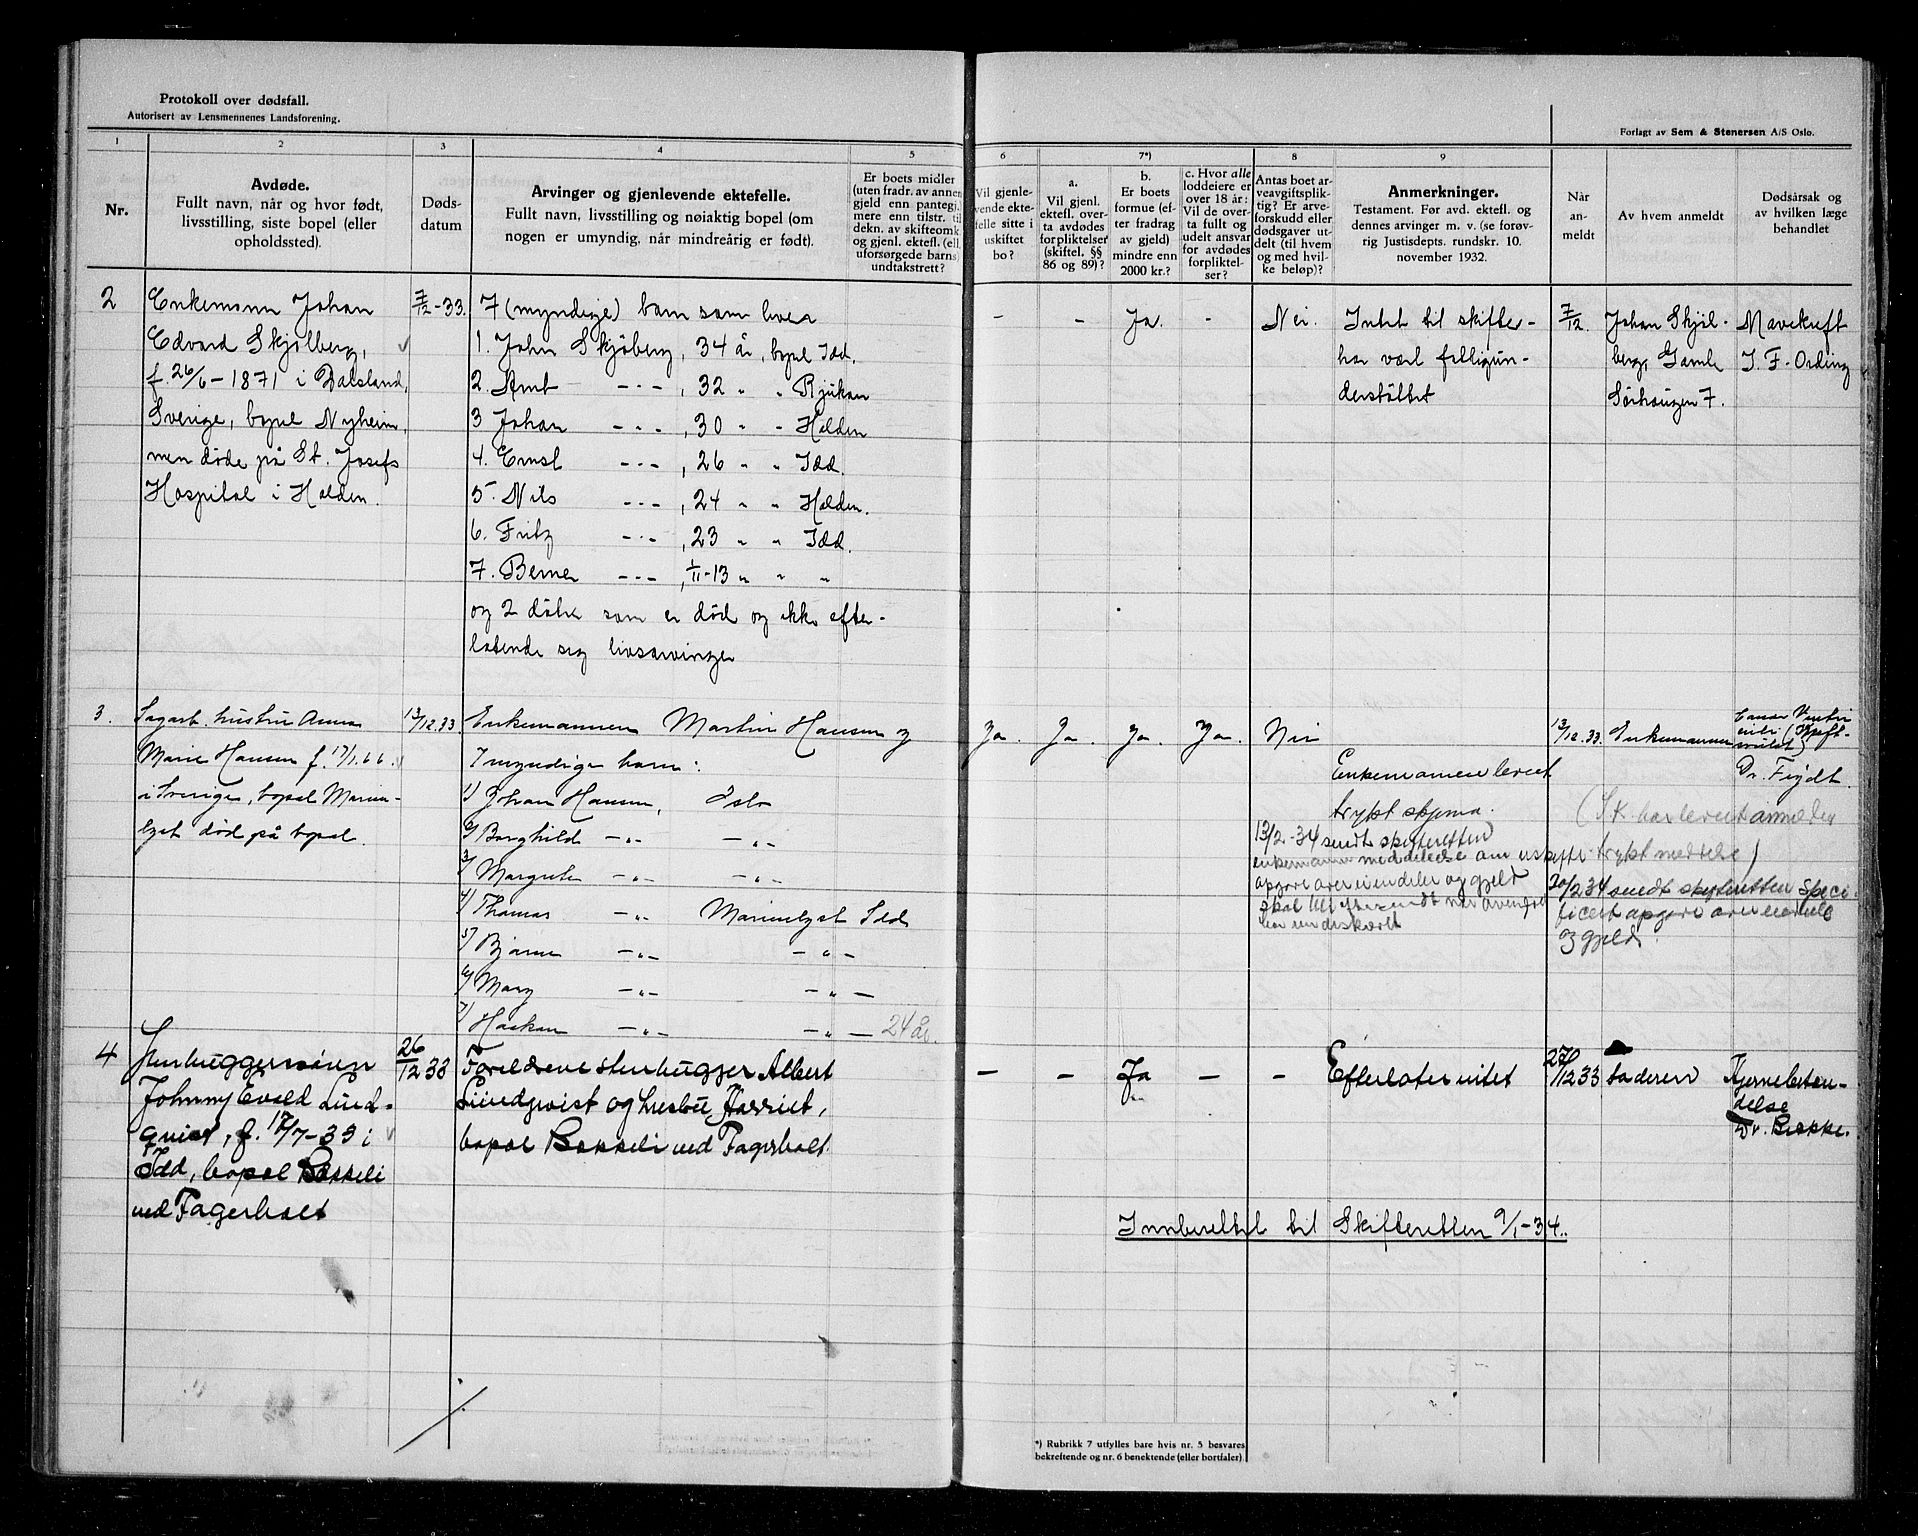 Protokoll over dødsfall.
Autorisert av Lensmennenes Landsforening.
Forlagt av Sem & Stenersen A/S Oslo.
1 2 3 4 5 6 7*) 8 9
Nr.
Avdøde.
Fullt navn, når og hvor født,
livsstilling, siste bopel (eller
opholdssted).
Døds-
datum
Arvinger og gjenlevende ektefelle.
Fullt navn, livsstilling og nøiaktig bopel (om
nogen er umyndig, når mindreårig er født).
Er boets midler
(uten fradr. av annen
gjeld enn pantegj.)
mere enn tilstr. til
dekn. av skifteomk.
og gjenl. ektef. (ell.
uforsørgede barns)
undtakstrett?
Vil gjenle-
vende ekte-
felle sitte i
uskiftet
bo?
a.
Vil gjenl.
ektef. over-
ta avdødes
forpliktelser
(skiftel. §§
86 og 89)?
b.
Er boets
formue (ef-
ter fradrag
av gjeld)
mindre enn
2000 kr.?
c. Hvor alle
loddeiere er
over 18 år:
Vil de over-
ta fullt og
udelt ansvar
for avdødes
forpliktel-
ser?
Antas boet ar-
veavgiftsplik-
tig? Er arve-
forskudd eller
dødsgaver ut-
delt (til hvem
og med hvil-
ke beløp)?
Anmerkninger.
Testament. Før avd. ektefl. og
dennes arvinger m. v. (se forøv-
rig Justisdepts. rundskr. 10.
november 1932.
Når
an-
meldt
Av hvem anmeldt
Dødsårsak og
av hvilken læge
behandlet
2
Enkemann Johan
Edvard Skjølberg,
f. 26/6-1871 i Dalsland,
Sverige, bopel Nyheim,
men døde på St. Josefs
Hospital i Halden.
7/12-33.
7 (myndige) barn som lever
1. John Skjöberg, 34 år, bopel Idd.
2. Arnt -"- , 32 " " Rjukan
3 Johan -"- , 30 " " Halden
4. Ernst -"- , 26 " " Idd.
5. Nils -"- , 24 " " Halden.
6. Fritz -"- , 23 " " Idd.
7. Berner -"- , 1/11-13 " " "
og 2 døtre som er død og ikke efter-
latende sig livsarvinger
- - Ja. - Nei.
Intet til skifte-
har vært fattigun-
derstøttet
7/12.
Johan Skjöl-
berg, Gamle
Sörhaugen 7.
Mavekreft
J. F. Ording
3.
Sagarb. hustru Anna
Marie Hansen f. 17/1.66.
i Sverige, bopel Marien-
lyst død på bopel.
13/12.33
Enkemannen Martin Hansen og
7 myndige barn:
1) Johan Hansen, Oslo
2) Borghild -"- -"-
3) Margrete -"- -"-
4) Thomas -"- Marienlyst Idd
5) Bjarne -"- -"-
6) Mary -"- -"-
7) Haakon -"- -"- 24 år.
Ja. Ja. Ja. Ja. Nei
Enkemannen levert
trykt skjema.
13/2-34 sendt skifteretten
enkemann meddelelse om uskifte
opgave over eiendeler og gjeld
13/12.33. Enkemannen
Dr. Frydt.
(S.K. har levert anmelder
trykt meddelse)
20/2 34 sendt skifteretten speci-
ficert opgave over eiendele
og gjeld.
4
Stenhuggersønn
Johnny Evald Lind-
qvist, f. 17/7-33 i
Idd, bopel Bakkeli
ved Fagerholt
26/12 33
Foreldrene stenhugger Albert
Lindqvist og hustru Harriet,
bopel Bakkeli ved Fagerholt.
- - Ja - -
Efterlater intet
27/12 33 faderen
Hjernebeten-
delse
Dr. Bakke.
Innberettet til Skifteretten 9/1-34.
*) Rubrikk 7 utfylles bare hvis nr. 5 besvares
bekreftende og nr. 6 benektende (eller bortfaler).